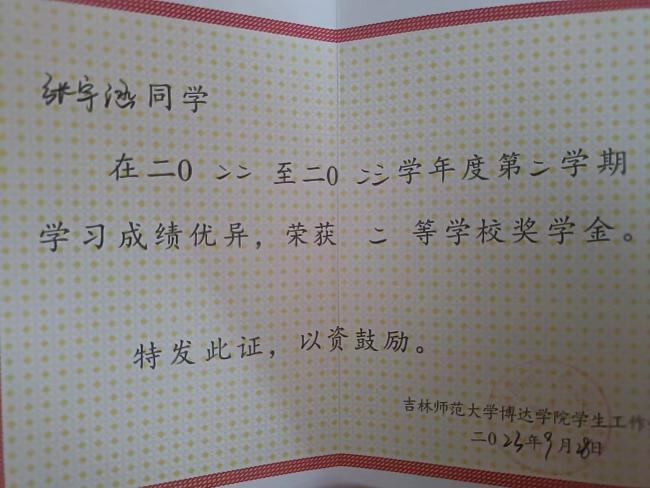 张宇涵同学
在二0二二至二0二三学年度第二学期
学习成绩优异，荣获二等学校奖学金。
特发此证，以资鼓励。
吉林师范大学博达学院学生工作
二023年9月28日